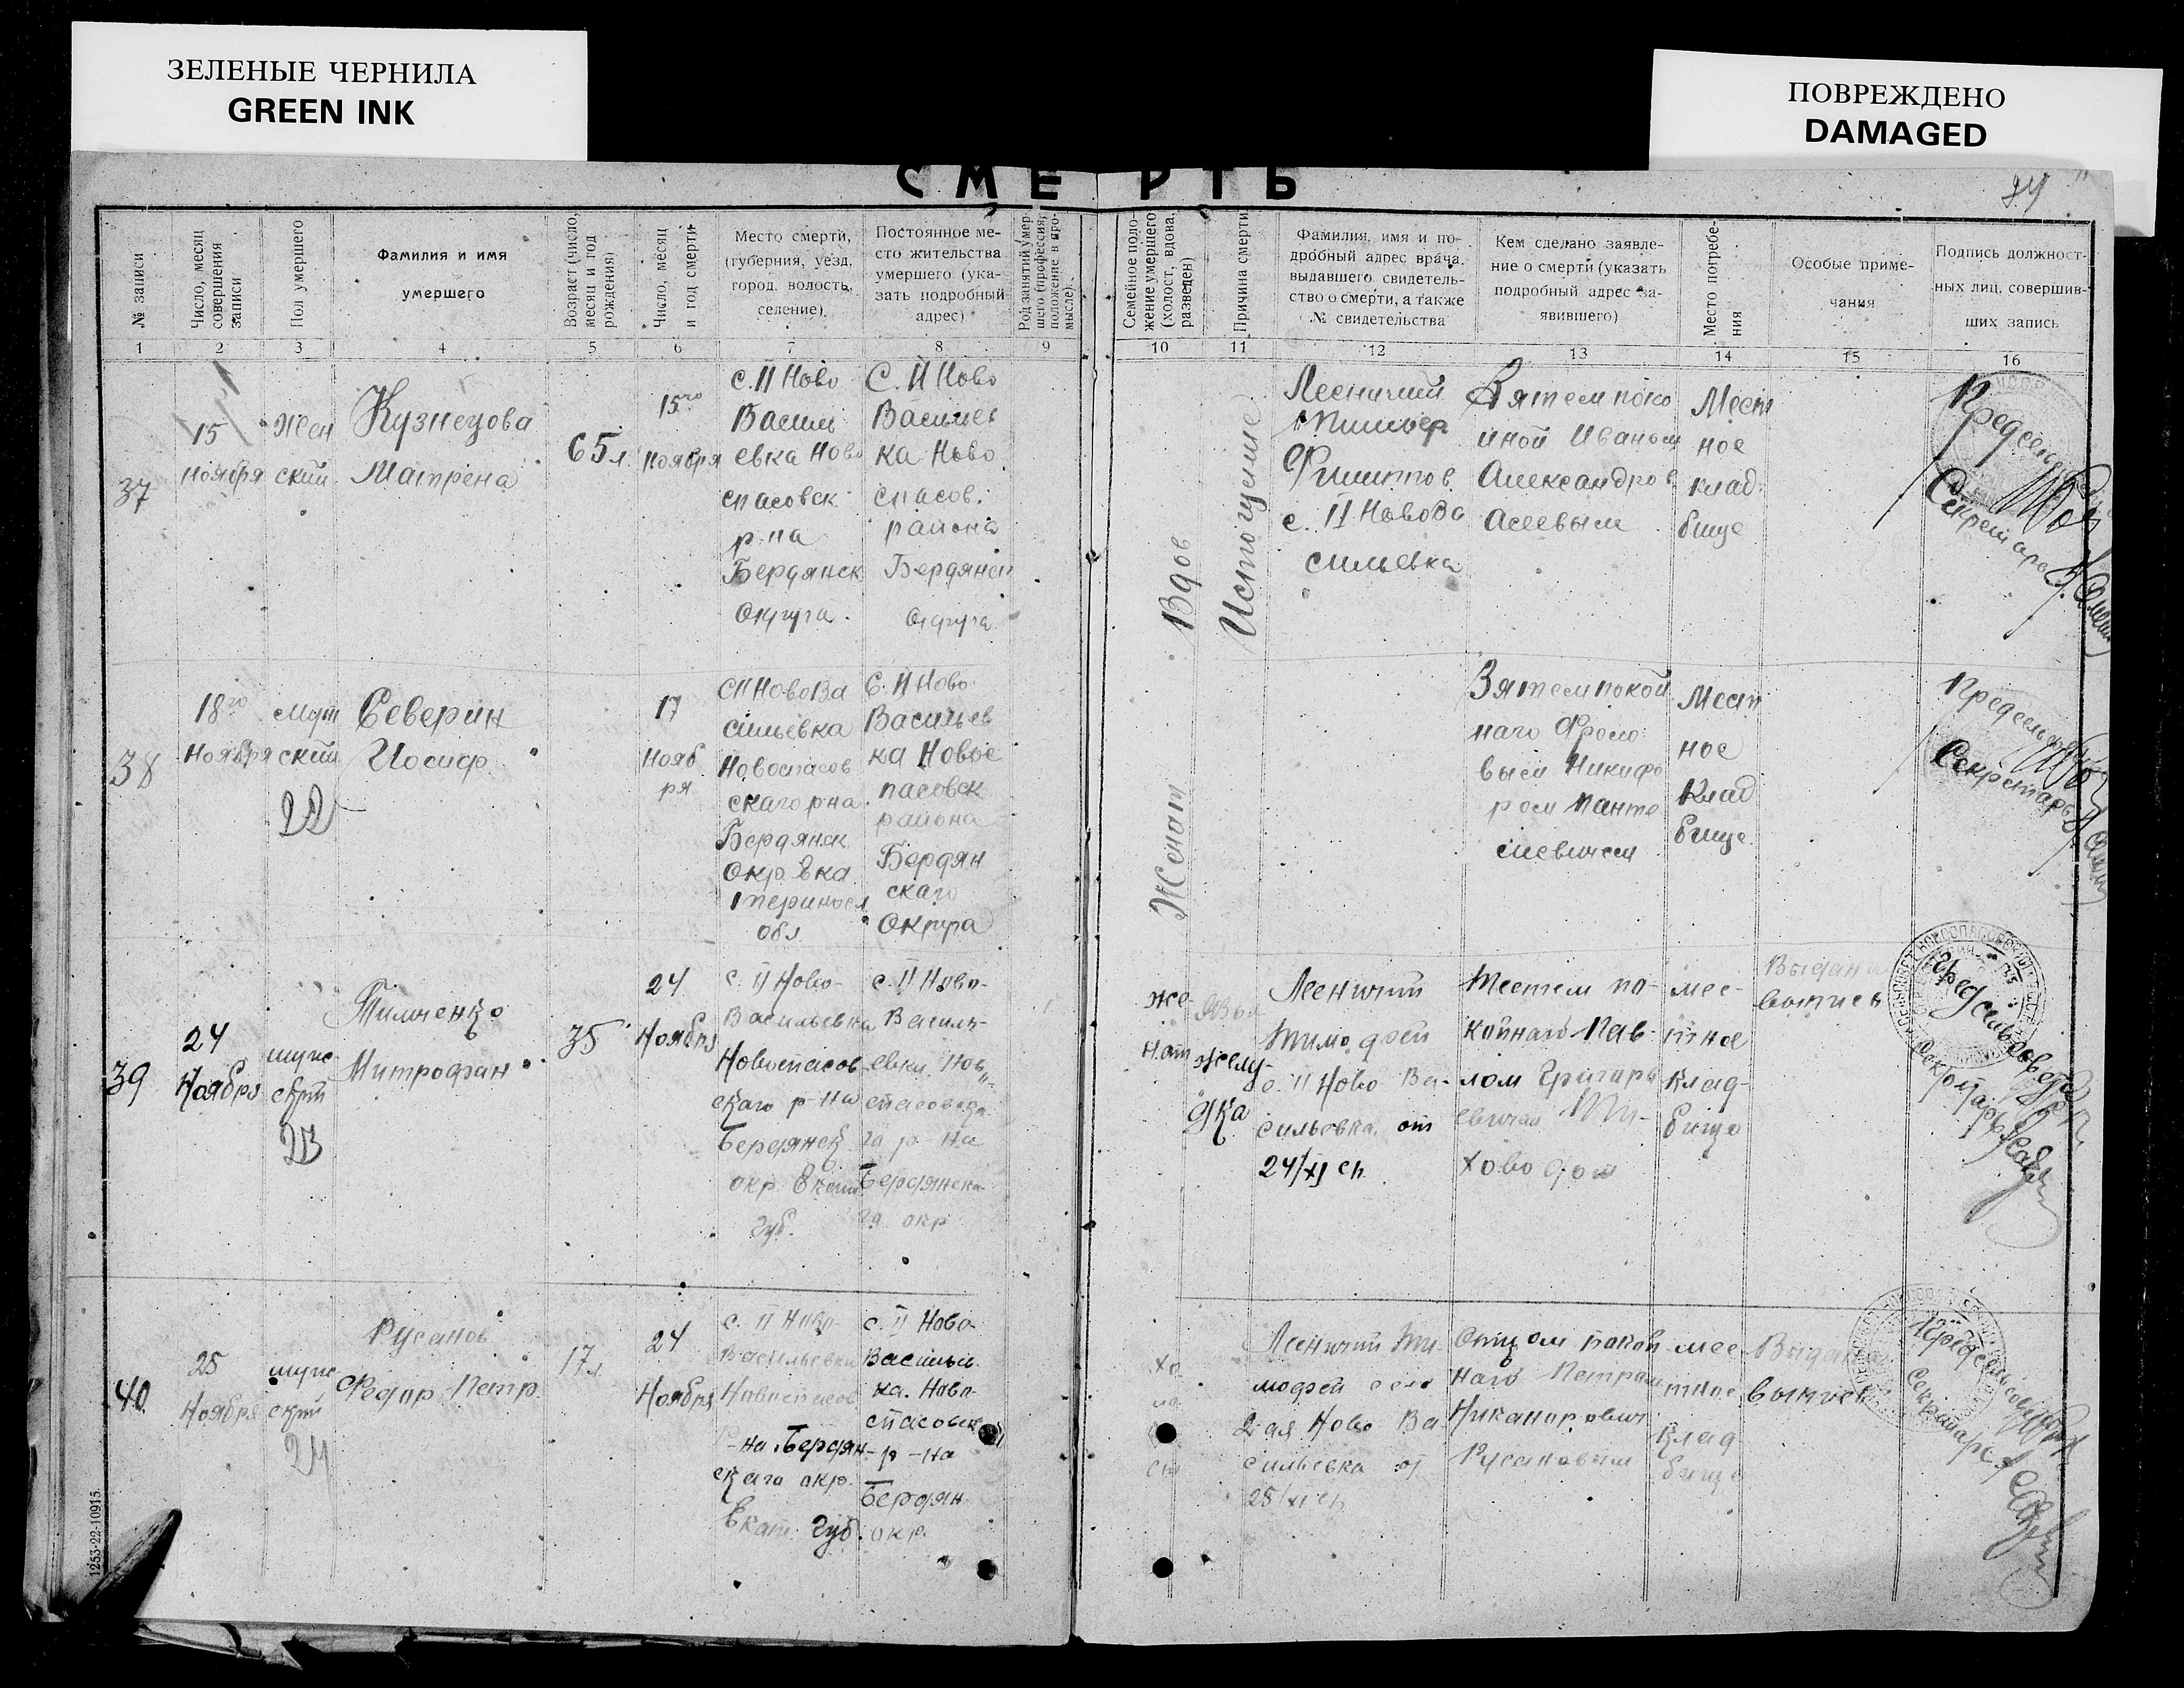 ЗЕЛЕНЫЕ ЧЕРНИЛА
GREEN INK
ПОВРЕЖДЕНО
DAMAGED
СМЕРТЬ
№ записи
Число, месяц
совершения
записи
Пол умершего
Фамилия и имя
умершего
Возраст (число,
месяц и год
рождения)
Число, месяц
и год смерти
Место смерти,
(губерния, уезд,
город, волость,
селение).
Постоянное ме-
сто жительства
умершего (ука-
зать подробный
адрес)
Род занятий умер-
шего (профессия,
положение в про-
мысле).
Семейное поло-
жение умершего
(холост, вдова,
разведен)
Причина смерти
Фамилия, имя и по-
дробный адрес врача,
выдавшего свидетель-
ство о смерти, а также
№ свидетельства
Кем сделано заявле-
ние о смерти (указать
подробный адрес за-
явившего)
Место погребе-
ния
Особые приме-
чания
Подпись должност-
ных лиц, совершив-
ших запись
1 2 3 4 5 6 7 8 9 10 11 12 13 14 15 16
37
15
ноября
Жен
ский
Кузнецова
Матрена
65 л.
15го
ноября
с. II Ново
Василь
евка Ново
спасовск
р-на
Бердянск
округа.
С. II Ново
Васильев
ка Ново
спасов.
района
Бердянск
округа
Вдов
Истощение
Лесничий
с. II Новова
сильевка
Зятем поко
йной Иваном
Александров
Асеевым
Мест
ное
клад
бище
Секретарь
38
18го
Ноября
муж
ский
22
Северин
Иосиф
17
Нояб
ря
с II Нова Ва
сильевка
Новоспасов
скаго рна
Бердянск
Окр. Ека
териносл
обл
С. II Ново
Васильев
ка Новос
пасовск
района
Бердян
скаго
Округа
Женат
Зятем покой
наго
вым Никифо
ром Панте
Мест
ное
Клад
бище
Секретарь
39
24
Ноября
муж-
ской
23
Тимченко
Митрофан
35
24
Ноября
с. II Ново-
Васильевка
Новоспасов-
скаго р-на
Бердянск
окр. Екат
губ.
с. II Ново-
Василь-
евка Ново
спасовска
га р-на
Бердянска-
га окр
же-
нат
Язва
желу-
дка
Леничий
Тимофей
с. II Ново Ва-
сильевка от
24/XI сп
Тестем по-
койнаго Пав-
лом Григорь
евичем
мес-
тное
клад-
бище
Выдана
выпись
Предсельсовета
Секретарь
40
25
Ноября
муж
ской
24
Русанов
Федор Петр.
17 л
24
Ноября
с. II Ново-
Васильевка
Новоспасов
р-на Бердян-
скаго окр.
Екат. губ.
с. II Ново-
Васильев
ка. Ново-
спасовск
р-на
Бердян
окр.
хо
ло
ст
Леничий Ти-
мофей село
2-ая Ново Ва
сильевка от
25/XI сп
Отцом покой
наго Петром
Никанорович
Русановым
мес
тное
клад
бище
Выдана
выпись
Предсельсовета
Секретарь
1253-22-10915.